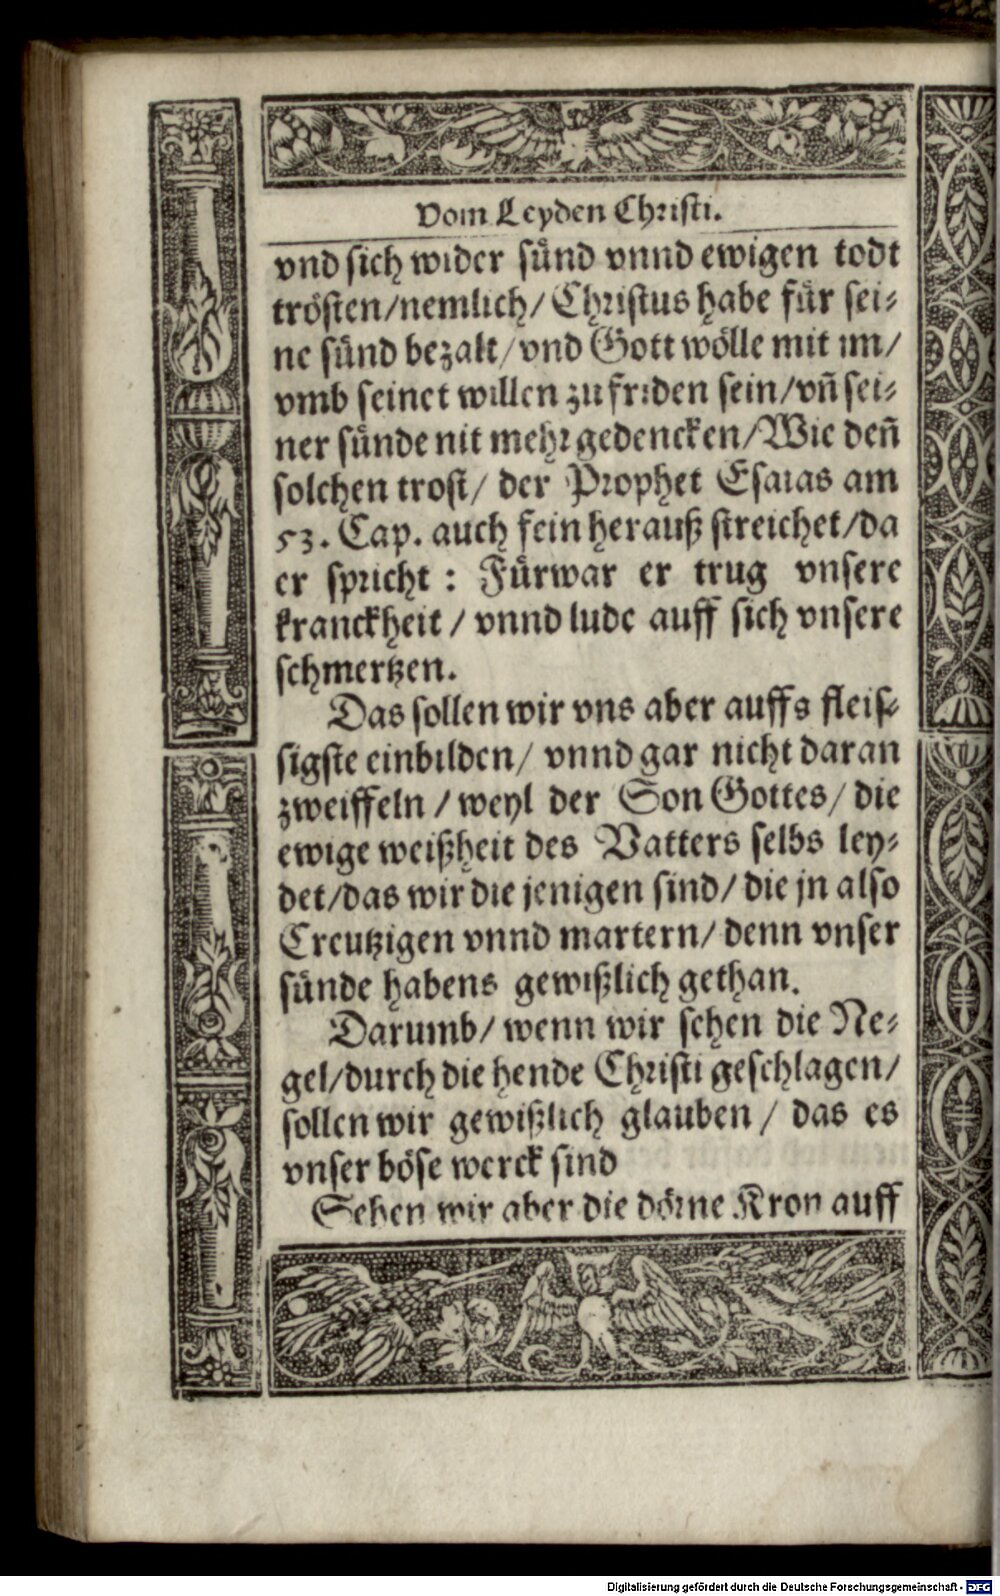 Vom Leyden Christi.
vnd sich wider sünd vnnd ewigen todt
trösten/nemlich/Christus habe für sei-
ne sünd bezalt/vnd Gott wölle mit im/
vmb seinet willen zu friden sein/vñ sei-
ner sünde nit mehr gedencken/Wie deñ
solchen trost/ der Prophet Esaias am
53. Cap. auch fein herauß streichet/da
er spricht : Fürwar er trug vnsere
kranckheit / vnnd lude auff sich vnsere
schmertzen.
Das sollen wir vns aber auffs fleis-
sigste einbilden/ vnnd gar nicht daran
zweiffeln / weyl der Son Gottes/ die
ewige weißheit des Vatters selbs ley-
det/das wir die jenigen sind/ die jn also
Creutzigen vnnd martern/ denn vnser
sünde habens gewißlich gethan.
Darumb/ wenn wir sehen die Ne-
gel/durch die hende Christi geschlagen/
sollen wir gewißlich glauben / das es
vnser böse werck sind
Sehen wir aber die dörne Kron auff
Digitalisierung gefördert durch die Deutsche Forschungsgemeinschaft - DFG